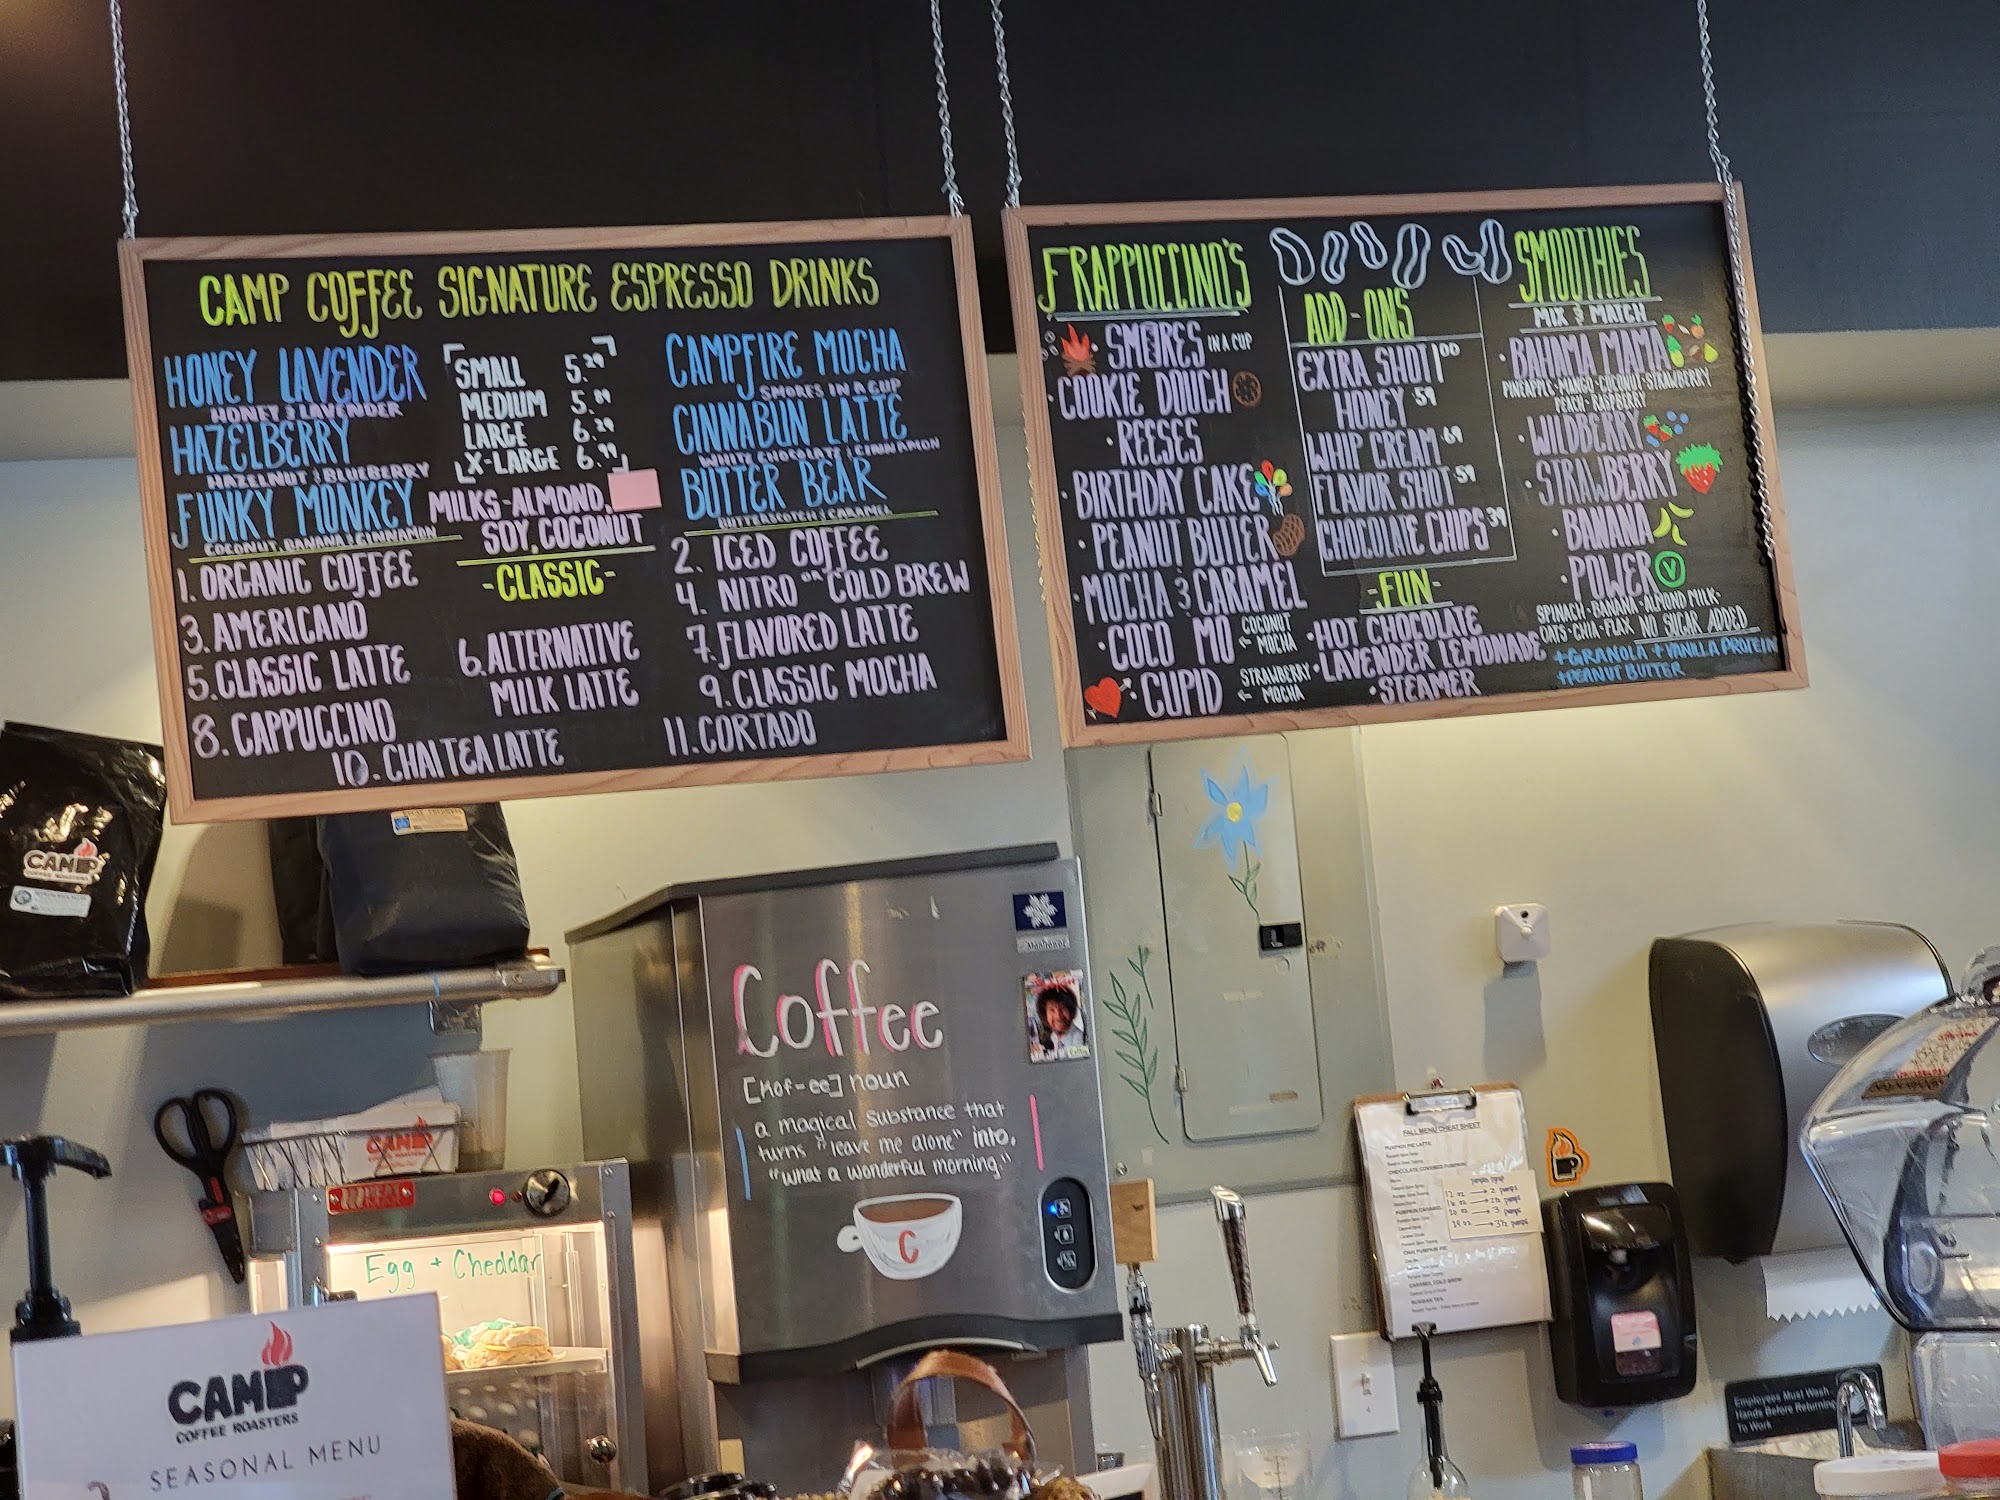 CAMP COFFEE SIGNATURE ESPRESSO DRINKS
HONEY LAVENDER
HONEY & LAVENDER
HAZELBERRY
HAZELNUT & BLUEBERRY
FUNKY MONKEY
COCONUT, BANANA & CINNAMON
SMALL 5.29
MEDIUM 5.89
LARGE 6.29
X-LARGE 6.99
MILKS-ALMOND,
SOY, COCONUT
CAMPFIRE MOCHA
SMORES IN A CUP
CINNABUN LATTE
WHITE CHOCOLATE & CINNAMON
BUTTER BEAR
BUTTERSCOTCH & CARAMEL
-CLASSIC-
1. ORGANIC COFFEE
2. ICED COFFEE
3. AMERICANO
4. NITRO OR COLD BREW
5. CLASSIC LATTE
6. ALTERNATIVE
MILK LATTE
7. FLAVORED LATTE
8. CAPPUCCINO
9. CLASSIC MOCHA
10. CHAI TEA LATTE
11. CORTADO
FRAPPUCCINO'S
· SMORES IN A CUP
· COOKIE DOUGH
· REESES
· BIRTHDAY CAKE
· PEANUT BUTTER
· MOCHA & CARAMEL
· COCO MO ← COCONUT
MOCHA
· CUPID ← STRAWBERRY
MOCHA
ADD-ONS
EXTRA SHOT 1.00
HONEY 59
WHIP CREAM 69
FLAVOR SHOT 59
CHOCOLATE CHIPS 39
-FUN-
· HOT CHOCOLATE
· LAVENDER LEMONADE
· STEAMER
SMOOTHIES
MIX & MATCH
· BAHAMA MAMA
PINEAPPLE·MANGO·COCONUT·STRAWBERRY
PEACH·RASPBERRY
· WILDBERRY
· STRAWBERRY
· BANANA
· POWER V
SPINACH·BANANA·ALMOND MILK·
OATS·CHIA·FLAX NO SUGAR ADDED
+GRANOLA +VANILLA PROTEIN
+PEANUT BUTTER
CAMP
COFFEE ROASTERS
Coffee
[Kof-ee] noun
a magical substance that
turns "leave me alone" into,
"what a wonderful morning."
C
Manitowoc
off
CAMP
Egg + Cheddar
CAMP
COFFEE ROASTERS
SEASONAL MENU
FALL MENU CHEAT SHEET
PUMPKIN PIE LATTE
CHOCOLATE COVERED PUMPKIN
12 oz → 2 pumps
16 oz → 2½ pumps
20 oz → 3 pumps
24 oz → 3½ pumps
CARAMEL COLD BREW
RUSSIAN TEA
Employees Must Wash
Hands Before Returning
To Work